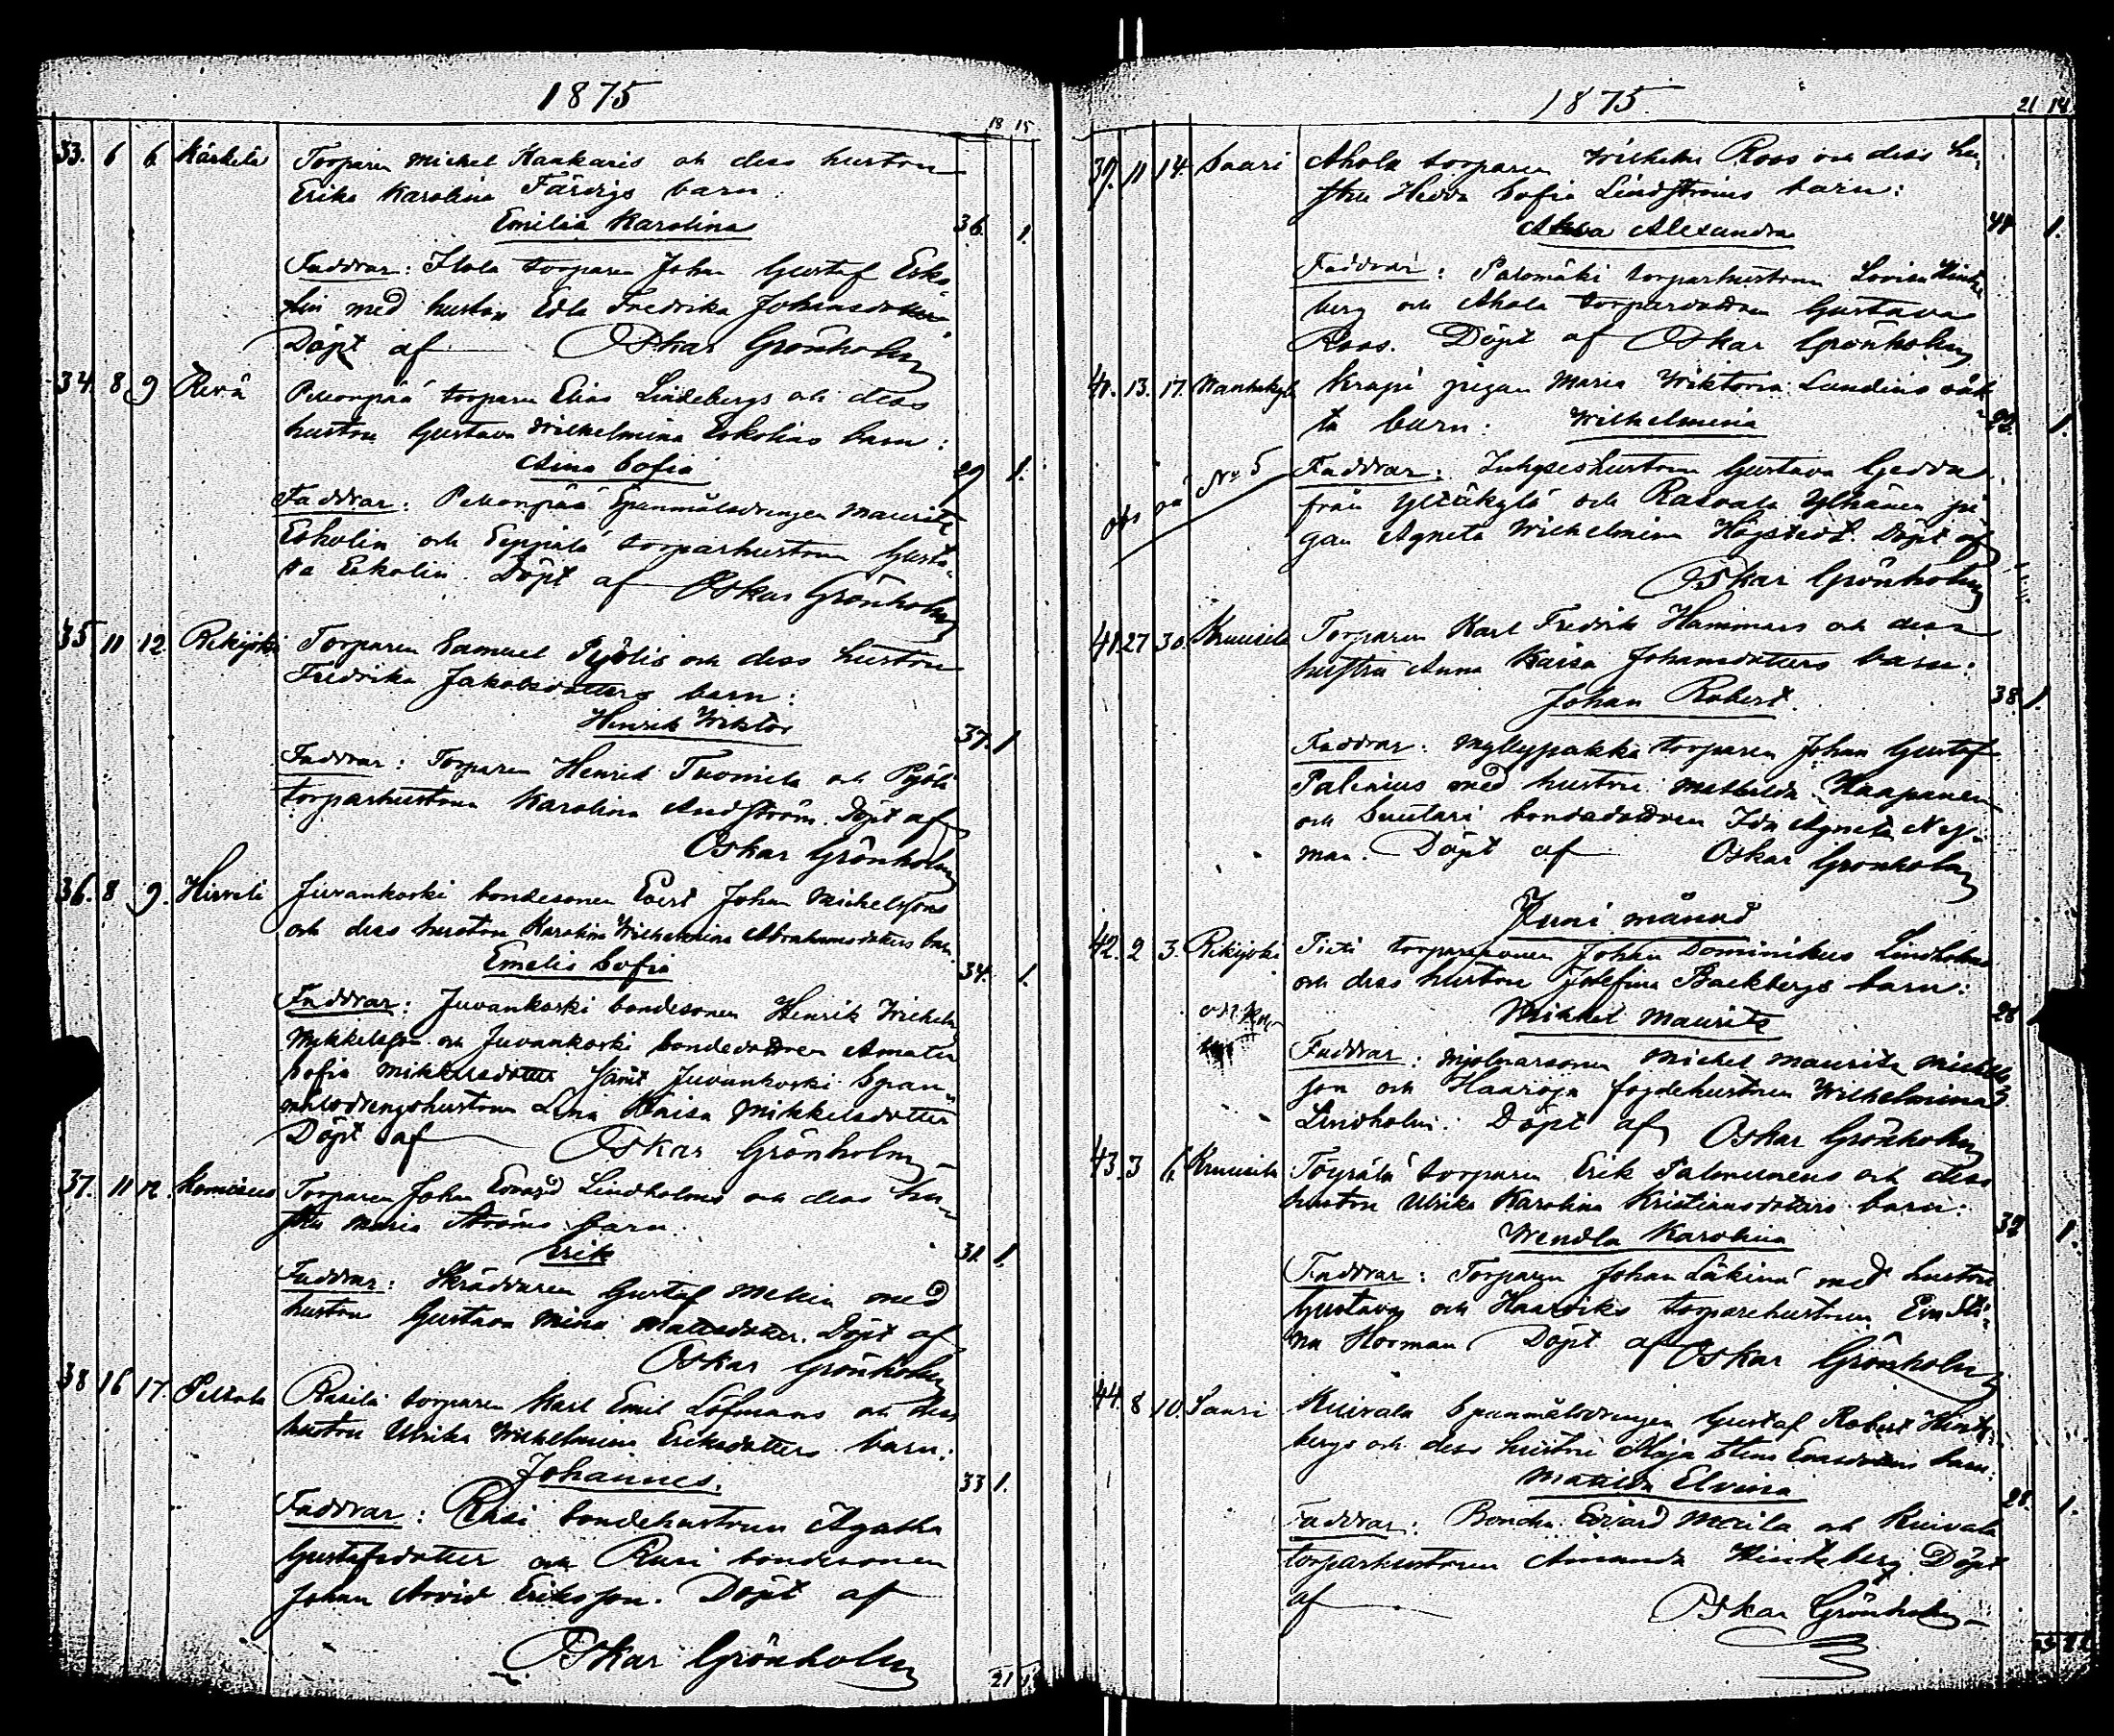 1875
18 15
33. 6 6 Kärkelä Torparen Michel Kankaris och dess hustru
Erika Karolina Färdigs barn
Emilia Karolina 36. 1.
Faddrar: Ilola torparen Johan Gustaf Esko-
lin med hustru Edla Fredrika Johansdotter
Döpt af Oskar Grönholm
34. 8 9 Revä Pekonpää torparen Elias Lindebergs och dess
hustru Gustava Wilhelmina Eskolins barn:
Aina Sofia 29 1.
Faddrar: Pekonpää Spanmålsdrengen Maurits
Eskolin och Seppälä torparhustrun Gusta-
va Eskolin. Döpt af Oskar Grönholm
35 11 12. Rekijoki Torparen Samuel Pyölis och dess hustru
Fredrika Jakobsdotters barn:
Henrik Wiktor 37. 1
Faddrar: Torparen Henrik Tuomela och Pyöli
torparhustrun Karolina Andström. Döpt af
Oskar Grönholm
36. 8 9. Hirvelä Juvankoski bondesonen Evert Johan Michelssons
och dess hustru Karolina Wilhelmina Abrahamsdotters barn
Emelie Sofia 34. 1.
Faddrar: Juvankoski bondesonen Henrik Wilhelm
Mikkelsson och Juvankoski bondedottren Amalia
Sofia Mikkelsdotter samt Juvankoski Span-
målsdrengshustrun Lena Kaisa Mikkelsdotter
Döpt af Oskar Grönholm
37. 11 12. Komisuo Torparen Johan Edvard Lindholms och dess hu-
stru Maria Ströms barn.
Erik 31. 1.
Faddrar: Skräddaren Gustaf Melin med
hustru Gustava Mina Mattsdotter. Döpt af
Oskar Grönholm
38 16 17. Peltola Rasila torparen Karl Emil Löfmans och dess
hustru Ulrika Wilhelmina Eriksdotters barn:
Johannes. 33 1.
Faddrar: Rasi bondehustrun Agatha
Gustafsdotter och Rusi bondesonen
Johan Arvid Eriksson. Döpt af
Oskar Grönholm
21
1875.
21 18
39. 11 14. Saari Ahola torparen Wilhelm Roos och dess hu-
stru Hedda Sofia Lindströms barn:
Alexandra 44 1.
Faddrar: Palomäki torparhustrun Lovisa Hintze
berg och Ahola torpardottren Gustava
Roos. Döpt af Oskar Grönholm
40. 13. 17. Krapi pigan Maria Wiktoria Lundins oäk-
ta barn: Wilhelmina 22. 1.
No 5 Faddrar: Inhyseshustrun Gustava Gedda
från Yltäkylä och Rasvala Ylhäinen pi-
gan Agneta Wilhelmina Högstedt. Döpt af
Oskar Grönholm
41. 27 30. Kruusila Torparen Karl Fredrik Hammars och dess
hustru Anna Kaisa Johansdotters barn:
Johan Robert. 38. 1.
Faddrar: Myllypakka torparen Johan Gustaf
Palenius med hustru Mathilda Haapanen
och Suutari bondedottren Ida Agneta Ny-
man. Döpt af Oskar Grönholm
Juni månad
42. 2 3. Rekijoki torparsonen Johan Dominikus Lindholms
och dess hustru Josefina Backbergs barn:
Mikkel Maurits 28
Faddrar: Mjölnarsonen Michel Maurits Michels-
son och Haaroja fogdehustrun Wilhelmina
Lindholm. Döpt af Oskar Grönholm
43. 3 6. Kruusila Töyrälä torparen Erik Salmenens och dess
hustru Ulrika Karolina Kristiansdotters barn:
Wendla Karolina 32 1.
Faddrar: Torparen Johan Läkinä med hustru
Gustava och torparehustrun Eva Sti-
na Horman Döpt af Oskar Grönholm
44. 8 10. Saari Kuivala Spanmålsdrengen Gustaf Robert Hintze-
bergs och dess hustru Maja Stina barn:
Matilda Elvina 28. 1.
Faddrar: Bonden Edvard Merila och Kuivala
torparhustrun Amanda Hintzeberg. Döpt
af Oskar Grönholm